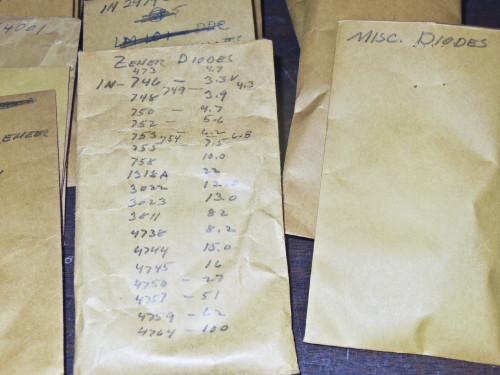 4001
ZENER
ZENER DIODES
473 4.7
1N-746 - 3.3V
749 - 4.3
748 3.9
750 - 4.7
752 - 5.6
753 6.2
754 - 6.8
755 7.5
758 10.0
1318A 22
3022 12.0
3023 13.0
3811 82
4738 8.2
4744 15.0
4745 16
4750 - 27
4757 - 51
4759 - 62
4764 - 100
MISC. DIODES